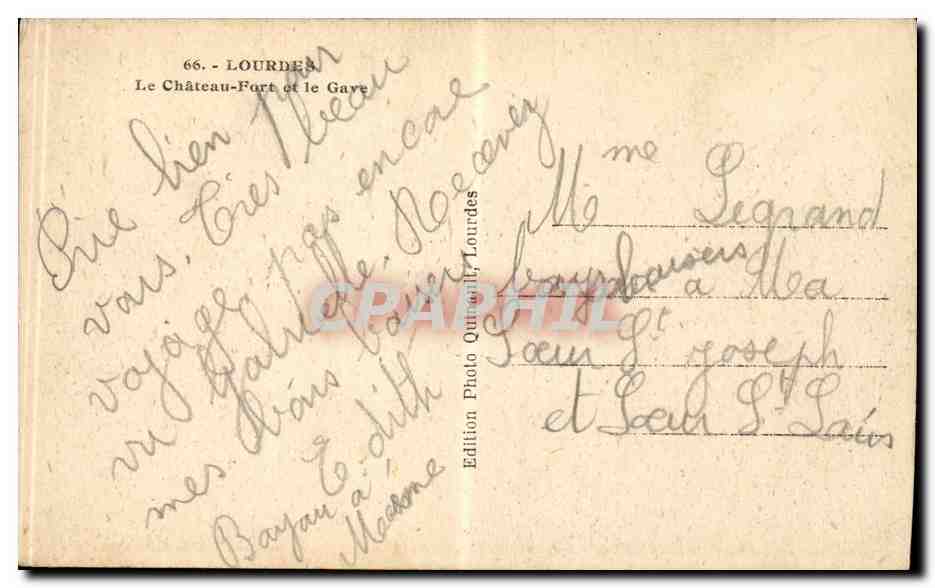 66. - LOURDES
Le Château-Fort et le Gave
Prie bien pour
vous. Très beau
voyage pas encore
vu Gabrielle. Recevez
mes bons baisers
Edith
à
Edition Photo Quinault, Lourdes
Mme Legrand
baisers à Ma
Sœur St Joseph
et Sœur St Louis
CPAPHIL.COM